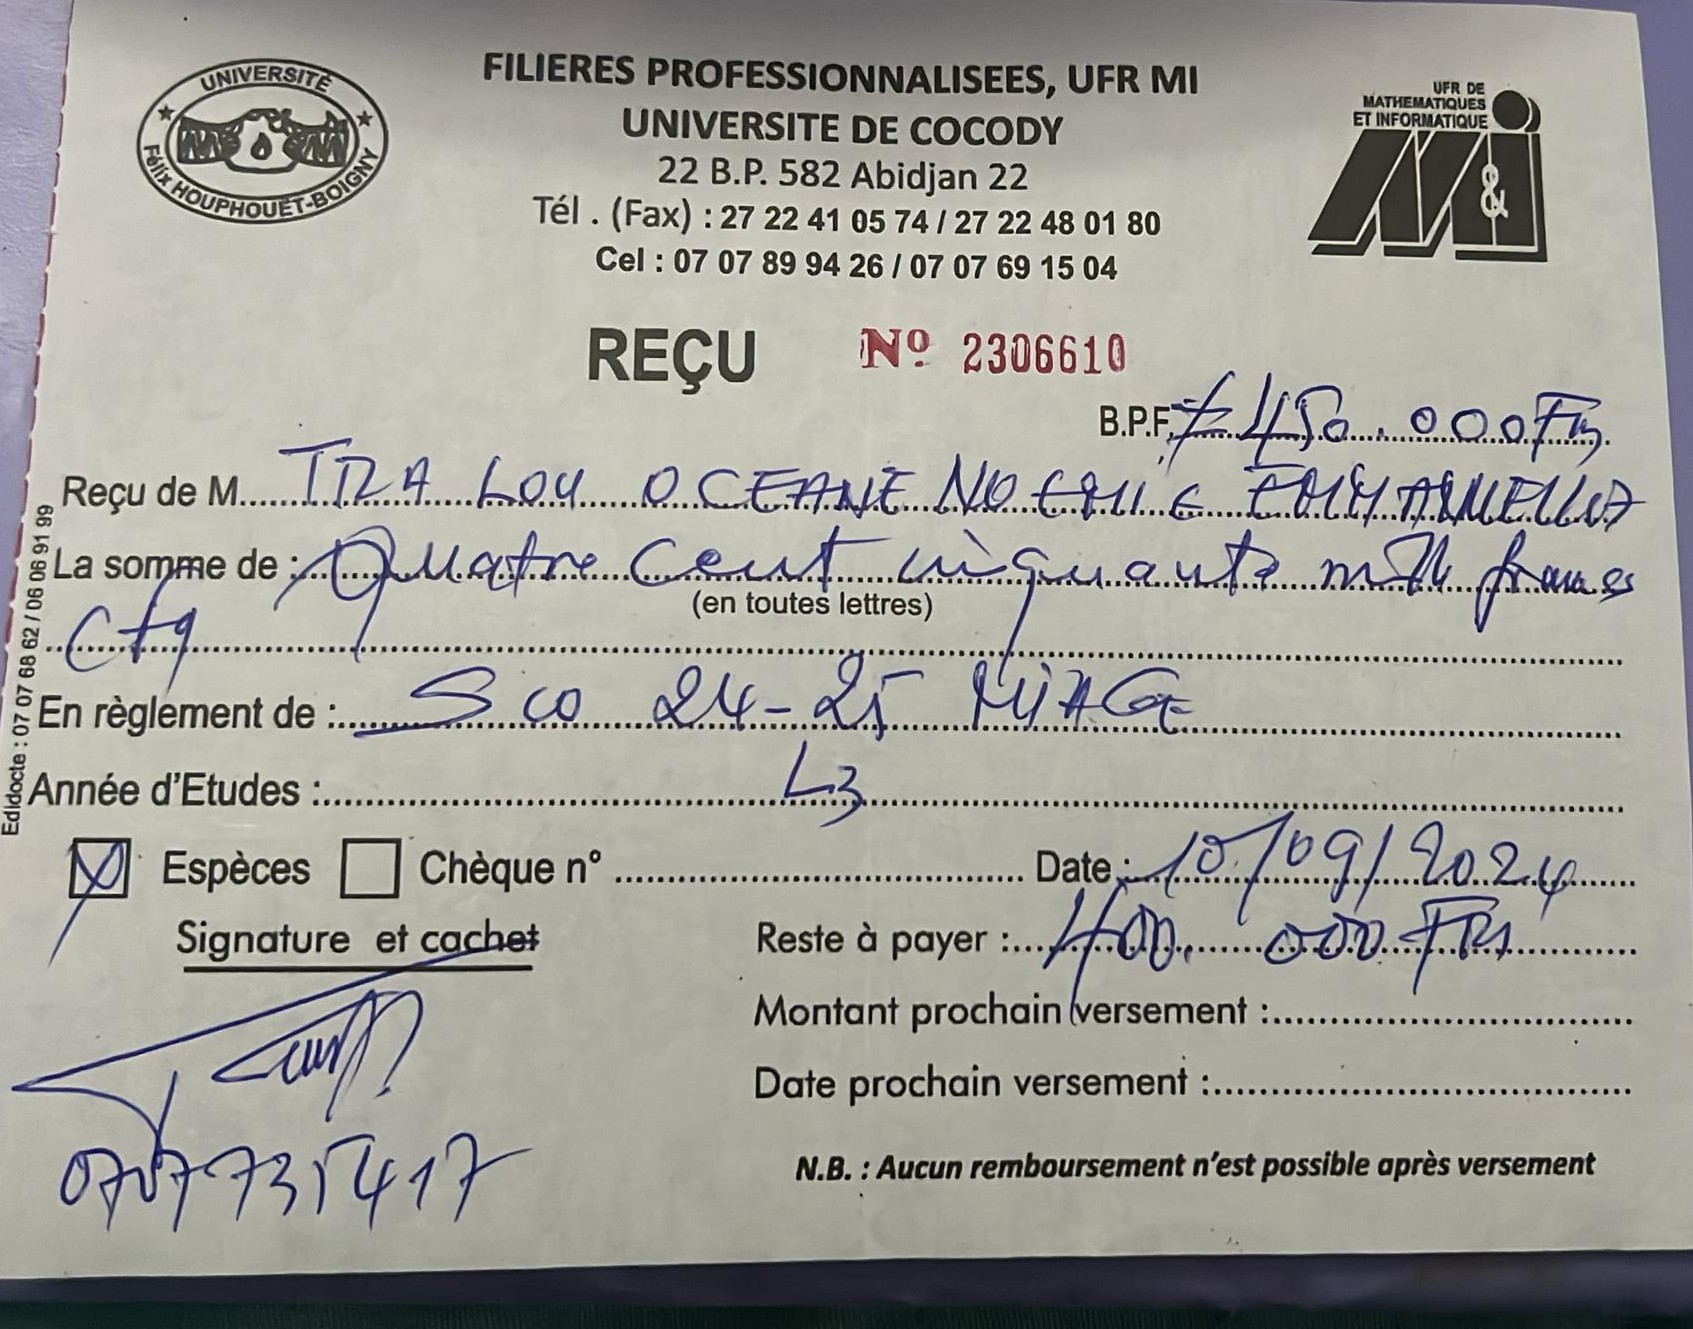 UNIVERSITÉ
Félix HOUPHOUËT-BOIGNY
FILIERES PROFESSIONNALISEES, UFR MI
UNIVERSITE DE COCODY
22 B.P. 582 Abidjan 22
Tél . (Fax) : 27 22 41 05 74 / 27 22 48 01 80
Cel : 07 07 89 94 26 / 07 07 69 15 04
UFR DE
MATHEMATIQUES
ET INFORMATIQUE
M&i
REÇU Nº 2306610
B.P.F. 450.000 Frs
Reçu de M. TRA LOU OCEANE NOEMIE EMMANUELLA
La somme de : Quatre cent cinquante mille francs
(en toutes lettres)
cfa
En règlement de : Sco 24-25 MIAGE
Année d'Etudes : L3
Espèces Chèque n° Date : 10/09/2024
Signature et cachet
Reste à payer : 400.000 FRs
Montant prochain versement :
Date prochain versement :
0707735417
N.B. : Aucun remboursement n'est possible après versement
Edidocte : 07 07 68 62 / 06 06 91 99